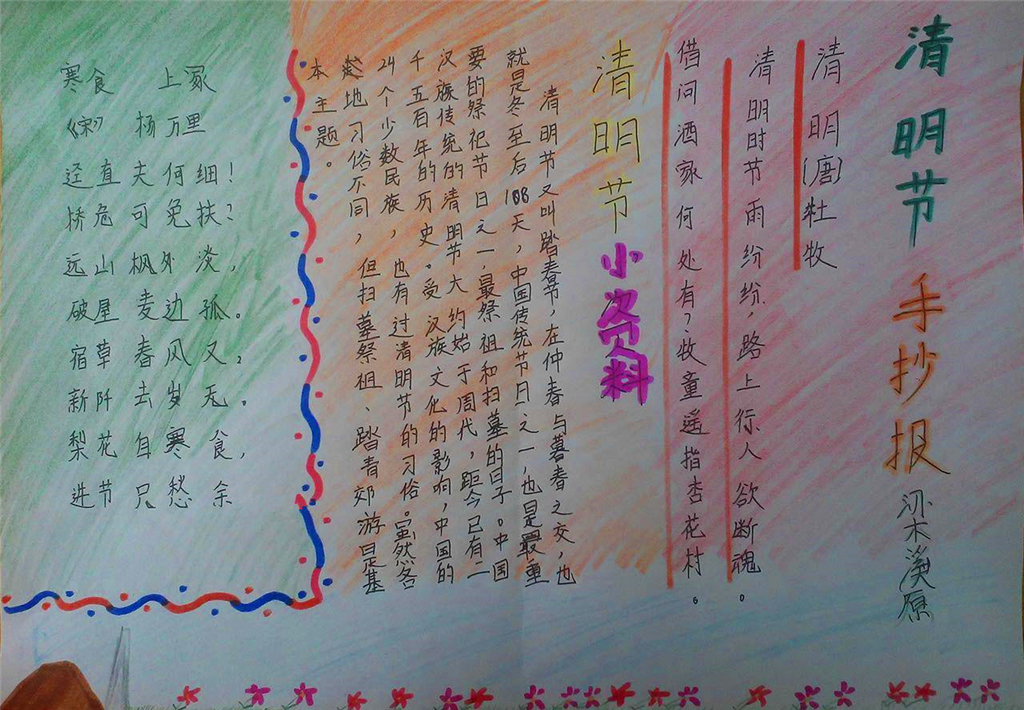 清明节手抄报
梁溪原
清明
(唐)牡牧
清明时节雨纷纷,路上行人欲断魂。
借问酒家何处有?牧童遥指杏花村。
清明节小资料
清明节又叫踏春节,在仲春与暮春之交,也
就是冬至后108天,中国传统节日之一,也是最重
要的祭祀节日之一,最祭祖和扫墓的日子。中国
汉族传统的清明节大约始于周代,距今已有二
千五百年的历史。受汉族文化的影响,中国的
24个少数民族,也有过清明节的习俗。虽然各
地习俗不同,但扫墓祭祖、踏青郊游是基
本主题。
寒食 上冢
《宋》 杨万里
迳直夫何细!
桥危可免扶?
远山枫外淡,
破屋麦边孤。
宿草春风又,
新阡去岁无。
梨花自寒食,
进节只愁余